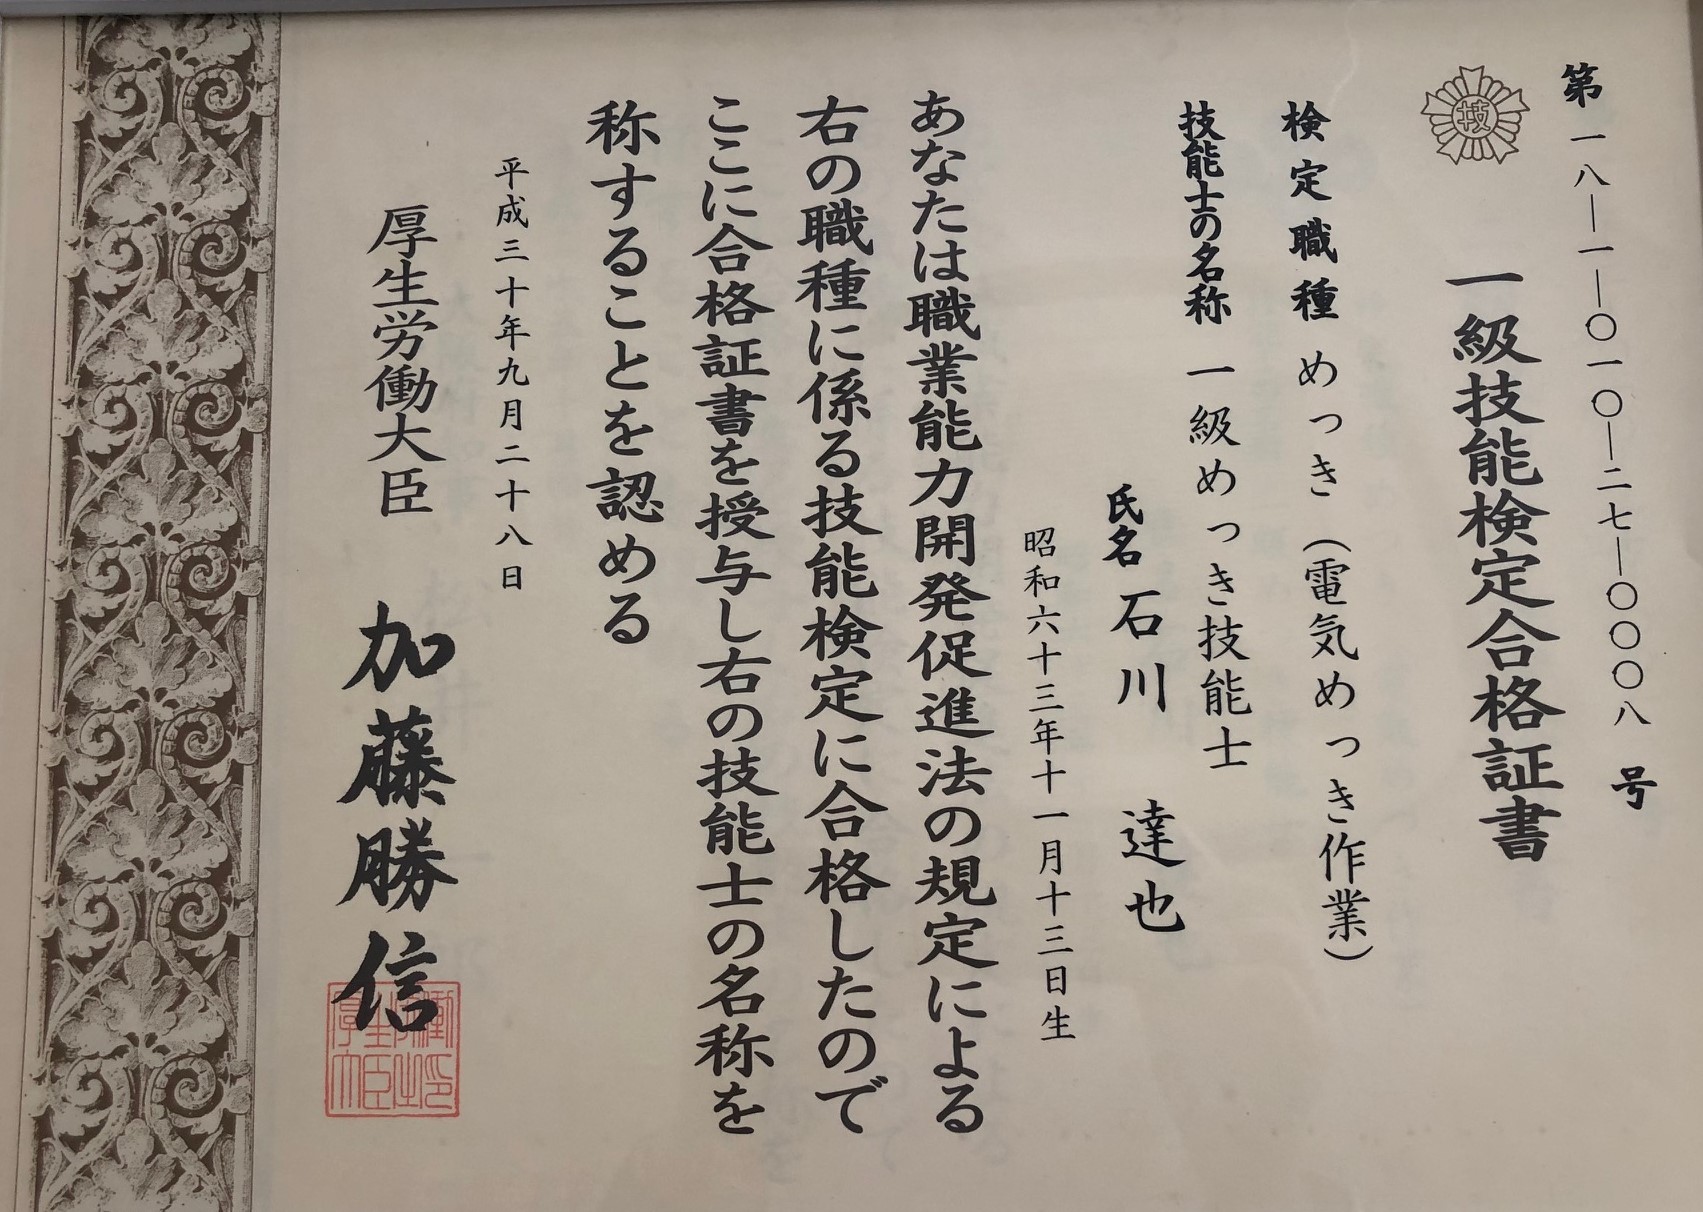 第一八―一―〇一〇〇―二七―〇〇〇〇八号
技
一級技能検定合格証書
検定職種 めっき（電気めっき作業）
技能士の名称 一級めっき技能士
氏名 石川 達也
昭和六十三年十一月十三日生
あなたは職業能力開発促進法の規定による
右の職種に係る技能検定に合格したので
ここに合格証書を授与し右の技能士の名称を
称することを認める
平成三十年九月二十八日
厚生労働大臣 加藤勝信
厚生労働大臣之印